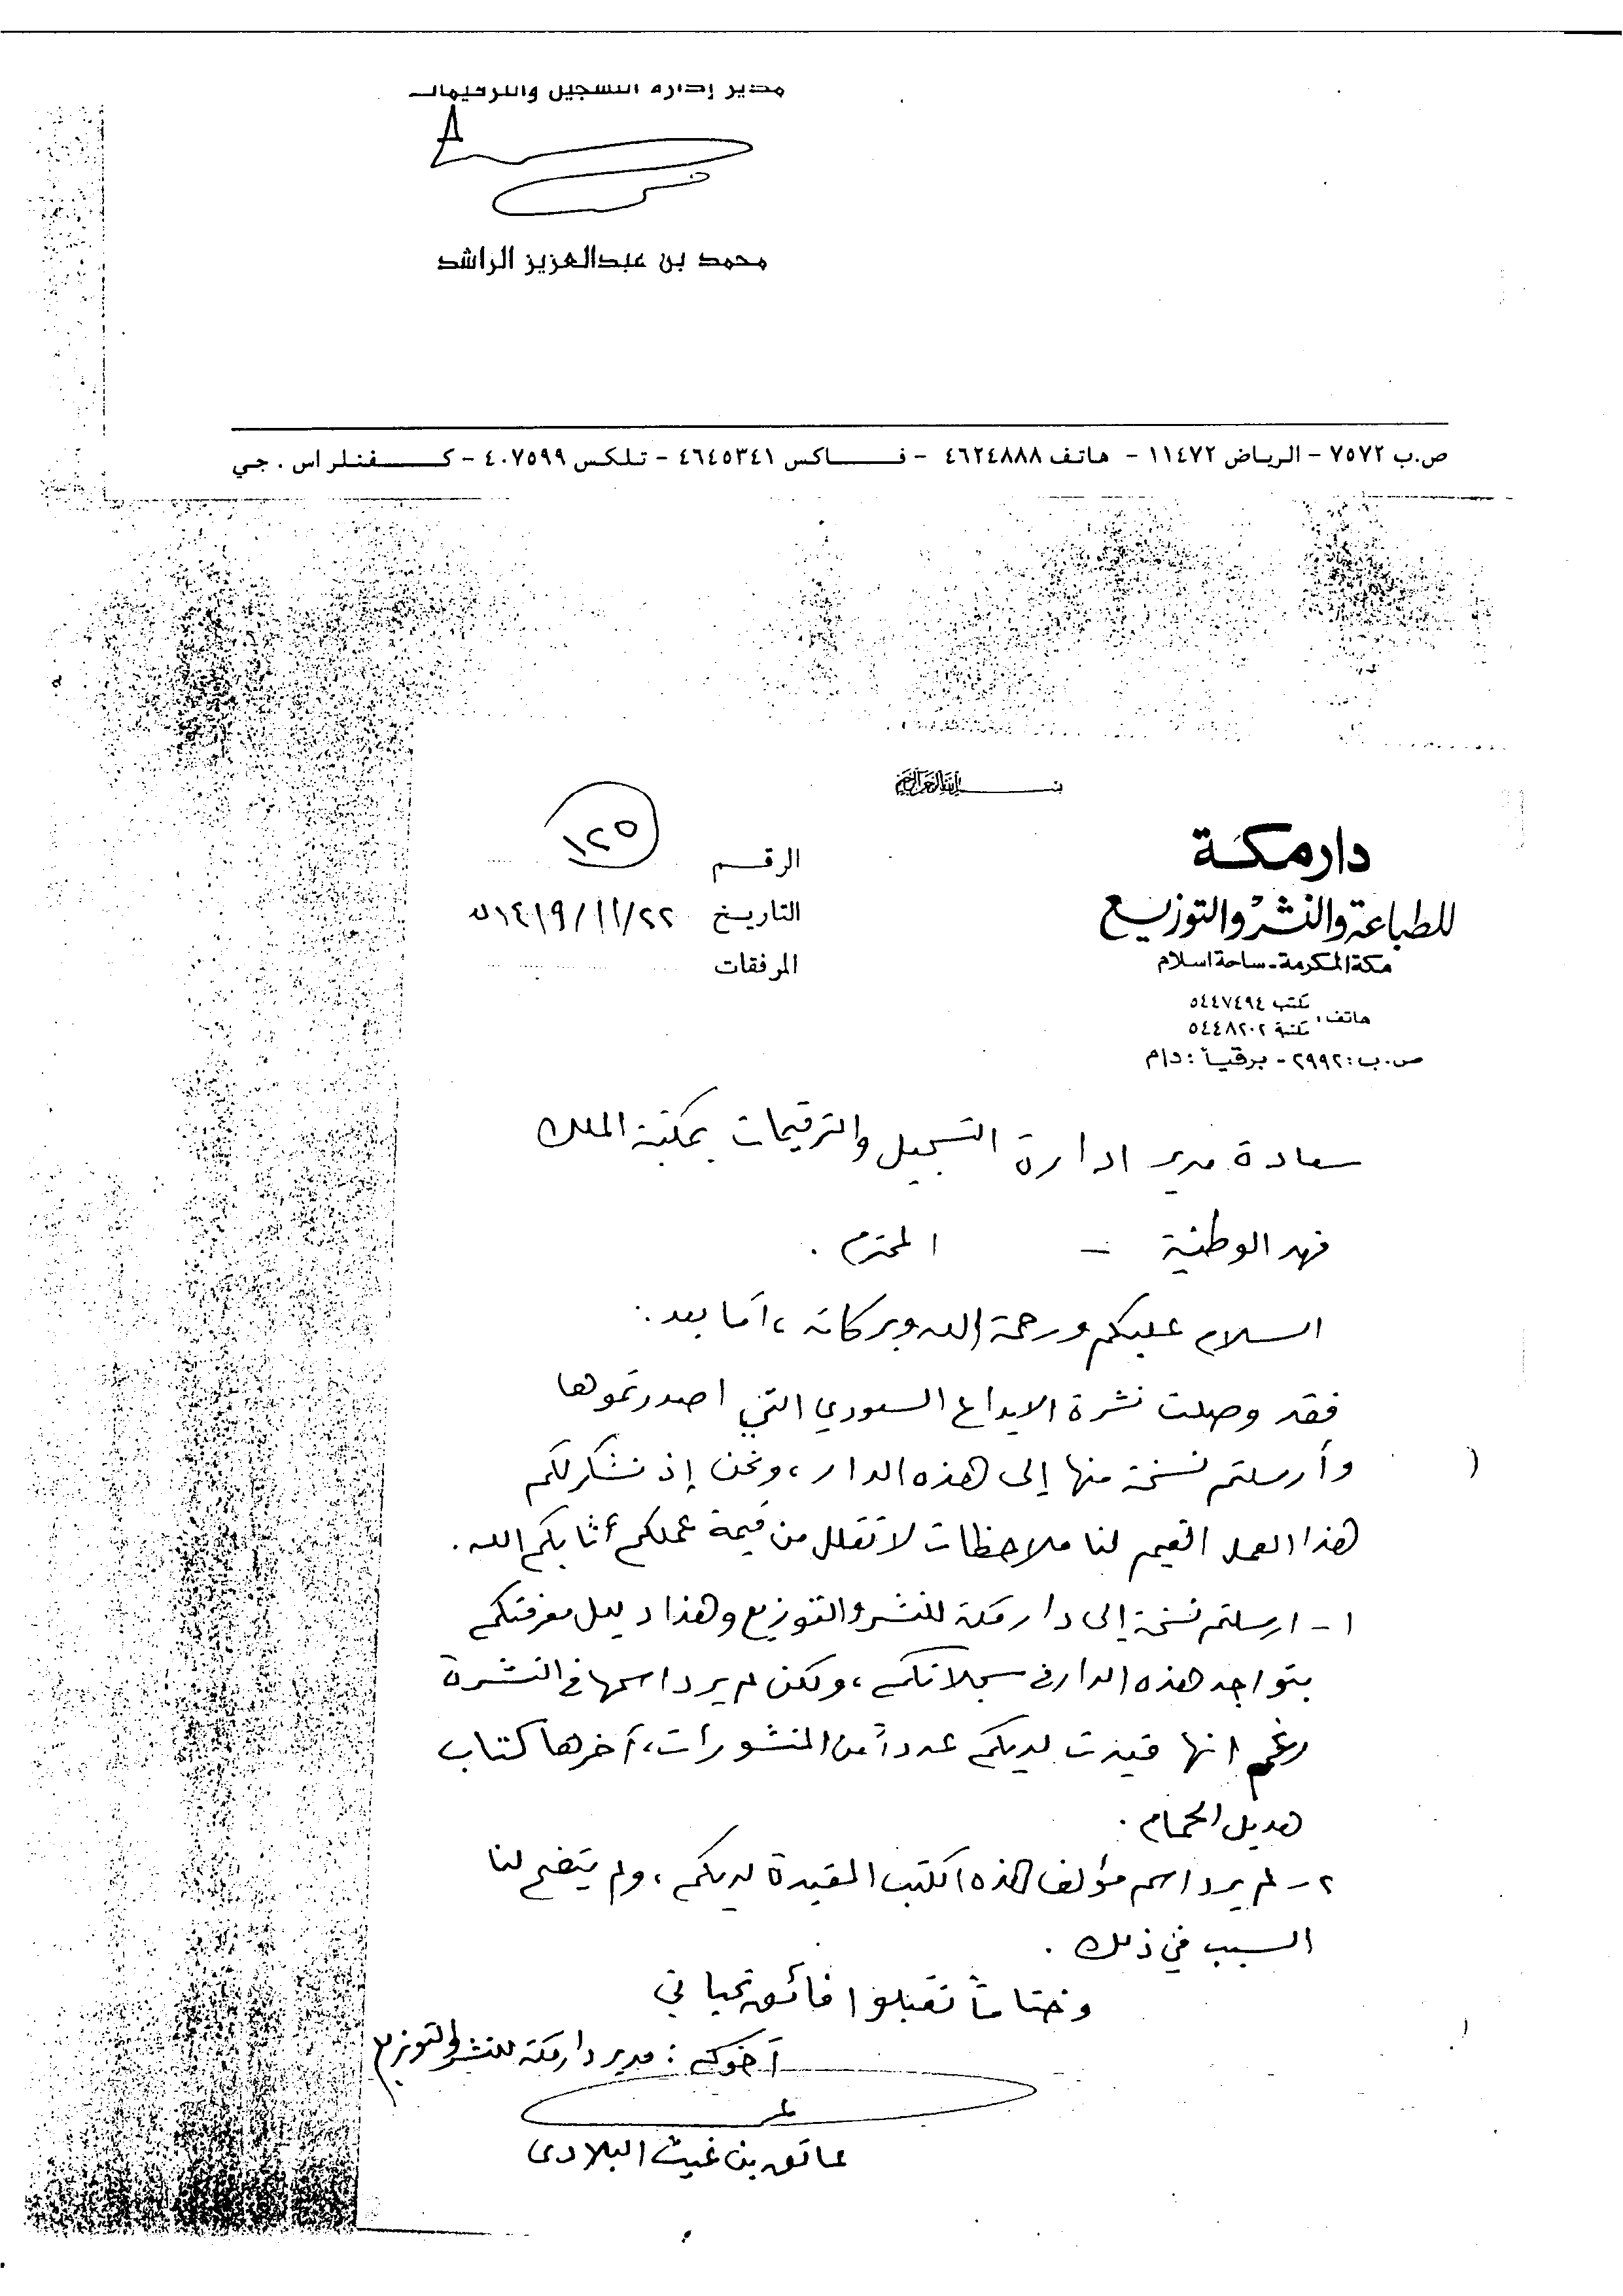 مدير إدارة التسجيل والترقيمات
محمد بن عبدالعزيز الراشد
ص.ب ٧٥٧٢ - الرياض ١١٤٧٢ - هاتف ٤٦٢٤٨٨٨ - فاكس ٤٦٤٥٣٤١ - تلكس ٤٠٧٥٩٩ - كفنلراس . جي
بسم الله الرحمن الرحيم
دار مكة
للطباعة والنشر والتوزيع
مكة المكرمة - ساحة اسلام
هاتف: مكتب ٥٤٤٧٤٩٤
مكتبة ٥٤٤٨٢٠٢
ص.ب: ٢٩٩٢ - برقياً: دام
الرقم ١٢٥
التاريخ ١٤١٩/١١/٢٢هـ
المرفقات
سعادة مدير ادارة التسجيل والترقيمات بمكتبة الملك
فهد الوطنية - المحترم .
السلام عليكم ورحمة الله وبركاته ، أما بعد :
فقد وصلت نشرة الايداع السعودي التي اصدرتموها
وأرسلتم نسخة منها إلى هذه الدار ، ونحن إذ نشكر لكم
هذا العمل القيم لنا ملاحظات لا تقلل من قيمة عملكم أثابكم الله .
١ - ارسلتم نسخة إلى دار مكة للنشر والتوزيع وهذا دليل معرفتكم
بتواجد هذه الدار في سجلاتكم ، ولكن لم يرد اسمها في النشرة
رغم انها قيدت لديكم عدداً من المنشورات ، آخرها كتاب
هديل الحمام .
٢ - لم يرد اسم مؤلف هذه الكتب المقيدة لديكم ، ولم يتضح لنا
السبب في ذلك .
وختاماً تقبلوا فائق تحياتي
أخوكم : مدير دار مكة للنشر والتوزيع
عاتق بن غيث البلادي